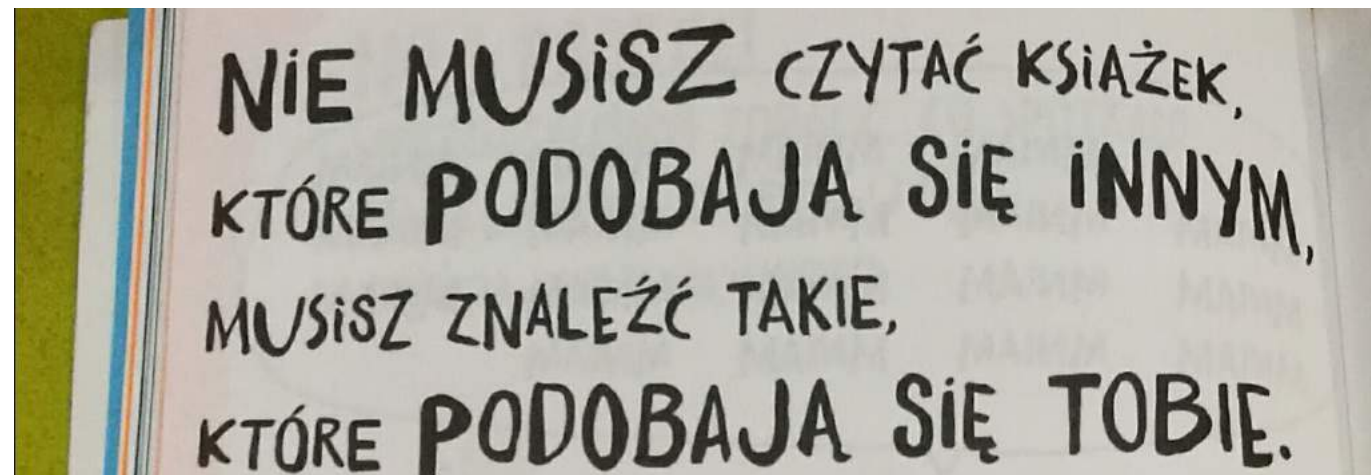 NiE MUSiSZ CZYTAĆ KSiĄŻEK,
KTÓRE PODOBAJĄ SiĘ iNNYM,
MUSiSZ ZNALEŹĆ TAKIE,
KTÓRE PODOBAJĄ SiĘ TOBIE.